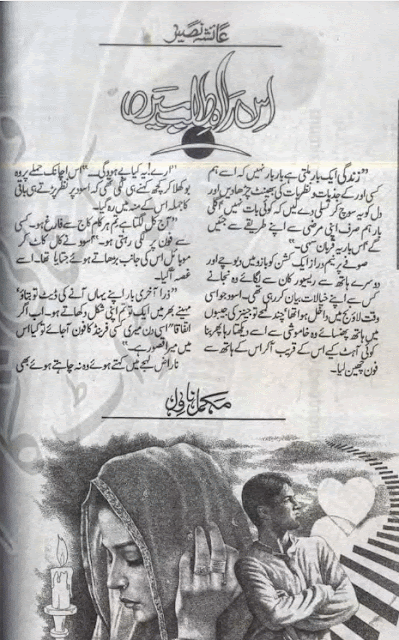 عائشہ نصیر
اس راہ طلب میں
"زندگی ایک بار ملتی ہے بار بار نہیں کہ اسے ہم
کسی اور کے جذبات و نظریات کی بھینٹ چڑھا دیں اور
دل کو یہ سوچ کر تسلی دے لیں کہ کوئی بات نہیں اگلی
بار ہم صرف اپنی مرضی سے اپنے طریقے سے جئیں
گے اس بار یہ قربان سہی۔"
صوفے پر نیم دراز ایک کشن کو بازو میں دبوچے اور
دوسرے ہاتھ سے ریسیور کان سے لگائے وہ نجانے
کس سے اپنے خیالات بیان کر رہی تھی۔ اسود جو اسی
وقت لاؤنج میں داخل ہوا تھا چند لمحے تو جینز کی جیبوں
میں ہاتھ پھنسائے وہ خاموشی سے اسے دیکھتا رہا پھر بنا
کوئی آہٹ کیے اس کے قریب آ کر اس کے ہاتھ سے
فون چھین لیا۔
"ارے! یہ کیا بے ہودگی۔۔۔" اس اچانک حملے پر وہ
بوکھلا کر کچھ کہنے ہی لگی تھی کہ اسود پر نظر پڑتے ہی باقی
کا جملہ اس کے منہ میں رہ گیا۔
"آج کل لگتا ہے تم ہر کام کاج سے فارغ ہو۔ کسی
سے فون پر لگی رہتی ہو۔" اسود نے کال کاٹ کر
موبائل اس کی جانب بڑھاتے ہوئے جتایا تھا۔ اسے
غصہ آ گیا۔
"ذرا آخری بار اپنے یہاں آنے کی ڈیٹ تو بتاؤ'
مہینے بھر میں ایک تو تم اپنی شکل دکھاتے ہو۔ اب اگر
اتفاقا" اسی دن میری کسی فرینڈ کا فون آ جائے تو کیا اس
میں میرا قصور ہے۔"
ناراض لہجے میں کہتے ہوئے وہ نہ چاہتے ہوئے بھی
مکمل ناول